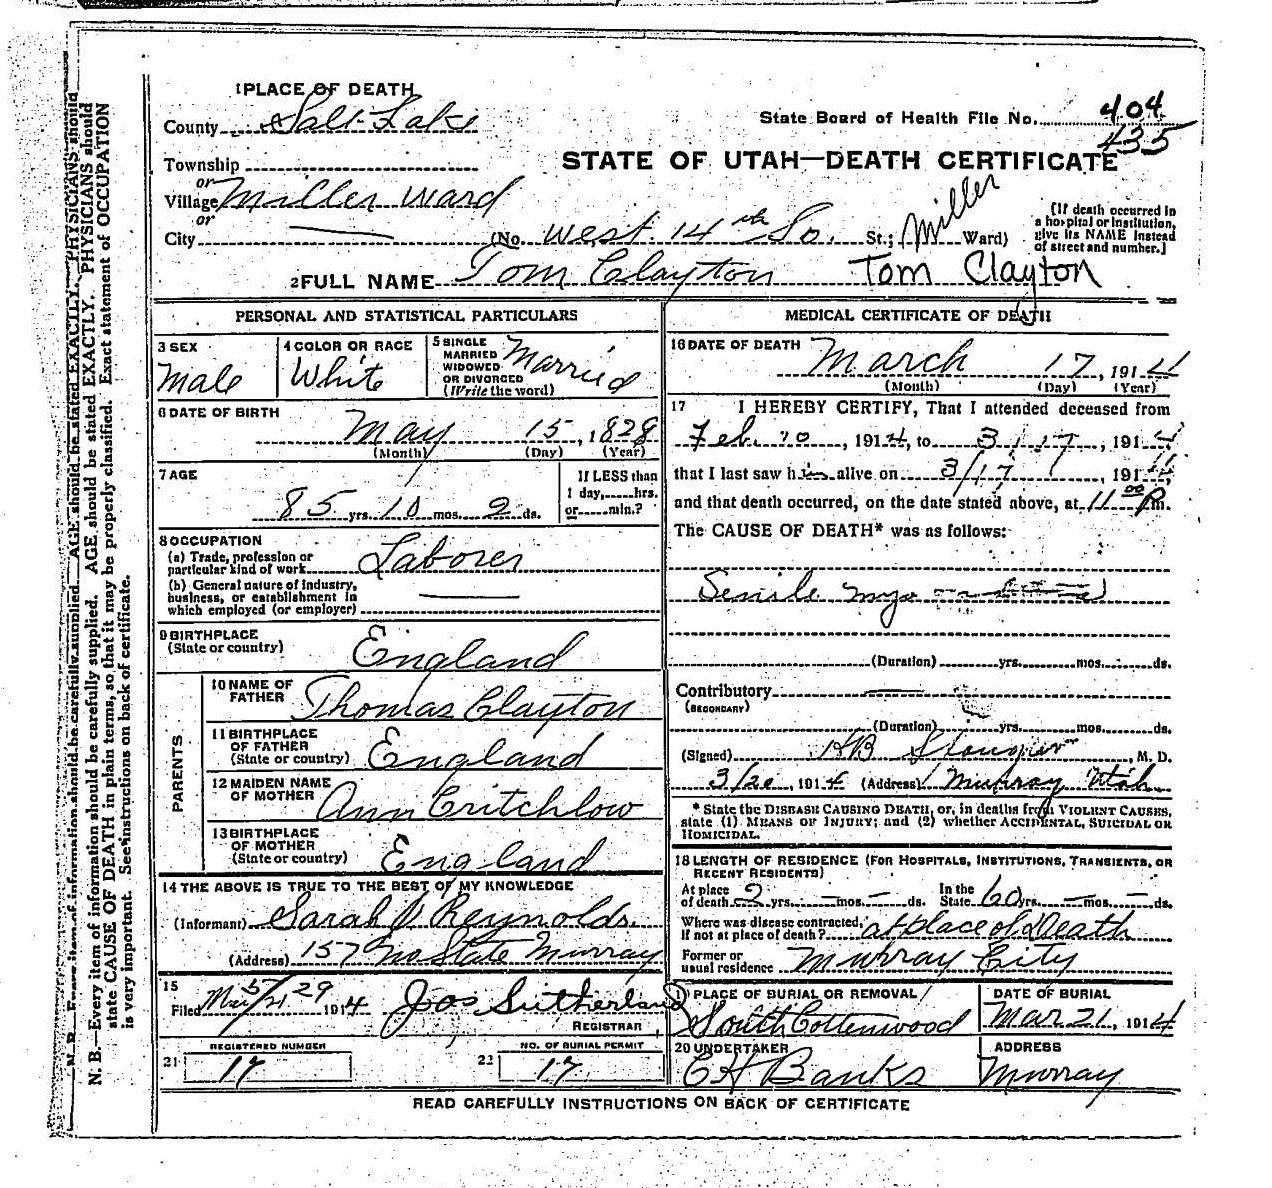 1 PLACE OF DEATH
County Salt Lake
State Board of Health File No. 404
435
Township
STATE OF UTAH—DEATH CERTIFICATE
or
Village Miller Ward
or
City (No. West 14th So. St.; Miller Ward)
[If death occurred in
a hospital or institution,
give its NAME instead
of street and number.]
2 FULL NAME Tom Clayton Tom Clayton
PERSONAL AND STATISTICAL PARTICULARS
3 SEX
Male
4 COLOR OR RACE
White
5 SINGLE
MARRIED
WIDOWED
OR DIVORCED
(Write the word)
Married
6 DATE OF BIRTH
May 15, 1828
(Month) (Day) (Year)
7 AGE
85 yrs. 10 mos. 2 ds.
If LESS than
1 day, hrs.
or min.?
8 OCCUPATION
(a) Trade, profession or
particular kind of work Laborer
(b) General nature of industry,
business, or establishment in
which employed (or employer)
9 BIRTHPLACE
(State or country) England
PARENTS
10 NAME OF
FATHER Thomas Clayton
11 BIRTHPLACE
OF FATHER
(State or country) England
12 MAIDEN NAME
OF MOTHER Ann Critchlow
13 BIRTHPLACE
OF MOTHER
(State or country) England
14 THE ABOVE IS TRUE TO THE BEST OF MY KNOWLEDGE
(Informant) Sarah Reynolds.
(Address) 157 No State Murray
15
Filed 1914 Jos Sutherland
REGISTRAR
21 REGISTERED NUMBER
17
22 NO. OF BURIAL PERMIT
17
MEDICAL CERTIFICATE OF DEATH
16 DATE OF DEATH
March 17, 1914
(Month) (Day) (Year)
17 I HEREBY CERTIFY, That I attended deceased from
Feb. 10, 1914, to 3/17, 1914
that I last saw him alive on 3/17, 1914,
and that death occurred, on the date stated above, at 11 00 P.m.
The CAUSE OF DEATH* was as follows:
Senile
(Duration) yrs. mos. ds.
Contributory
(SECONDARY)
(Duration) yrs. mos. ds.
(Signed) HB , M. D.
3/20, 1914 (Address) Murray Utah
* State the DISEASE CAUSING DEATH, or, in deaths from VIOLENT CAUSES,
state (1) MEANS OF INJURY; and (2) whether ACCIDENTAL, SUICIDAL OR
HOMICIDAL.
18 LENGTH OF RESIDENCE (FOR HOSPITALS, INSTITUTIONS, TRANSIENTS, OR
RECENT RESIDENTS)
At place
of death 2 yrs. — mos. — ds.
In the
State 60 yrs. — mos. — ds.
Where was disease contracted,
If not at place of death? at place of Death
Former or
usual residence Murray City
19 PLACE OF BURIAL OR REMOVAL
South Cottenwood
DATE OF BURIAL
Mar 21, 1914
20 UNDERTAKER
CH Banks
ADDRESS
Murray
READ CAREFULLY INSTRUCTIONS ON BACK OF CERTIFICATE
N. B.—Every item of information should be carefully supplied. AGE should be stated EXACTLY. PHYSICIANS should
state CAUSE OF DEATH in plain terms, so that it may be properly classified. Exact statement of OCCUPATION
is very important. See instructions on back of certificate.